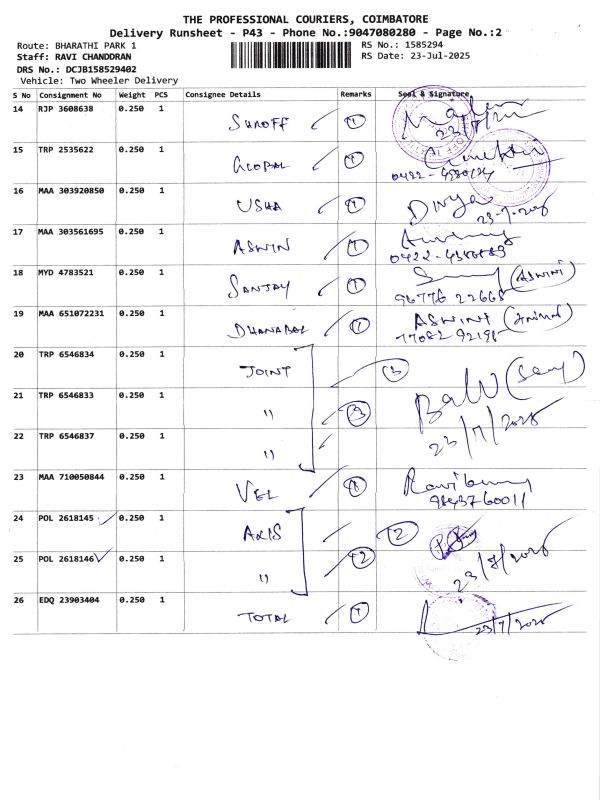 THE PROFESSIONAL COURIERS, COIMBATORE
Delivery Runsheet - P43 - Phone No.:9047080280 - Page No.:2
Route: BHARATHI PARK 1 RS No.: 1585294
Staff: RAVI CHANDDRAN RS Date: 23-Jul-2025
DRS No.: DCJB158529402
Vehicle: Two Wheeler Delivery
S No Consignment No Weight PCS Consignee Details Remarks Seal & Signature
14 RJP 3608638 0.250 1 SHROFF 1
15 TRP 2535622 0.250 1 GOPAL 1
16 MAA 303920850 0.250 1 USHA 1 Divya
17 MAA 303561695 0.250 1 ASWIN 1
18 MYD 4783521 0.250 1 SANJAY 1 (ASWINI)
96776 22668
19 MAA 651072231 0.250 1 DHANABAL 1 ASWINI
77082 92195
20 TRP 6546834 0.250 1 JOINT 3
21 TRP 6546833 0.250 1 " 3 Balu
22 TRP 6546837 0.250 1 " 23/7/2025
23 MAA 710050844 0.250 1 VEL 1 Ravikumar
9843760011
24 POL 2618145 0.250 1 AXIS 2
25 POL 2618146 0.250 1 " 2 23/7/2025
26 EDQ 23903404 0.250 1 TOTAL 1 23/7/2025